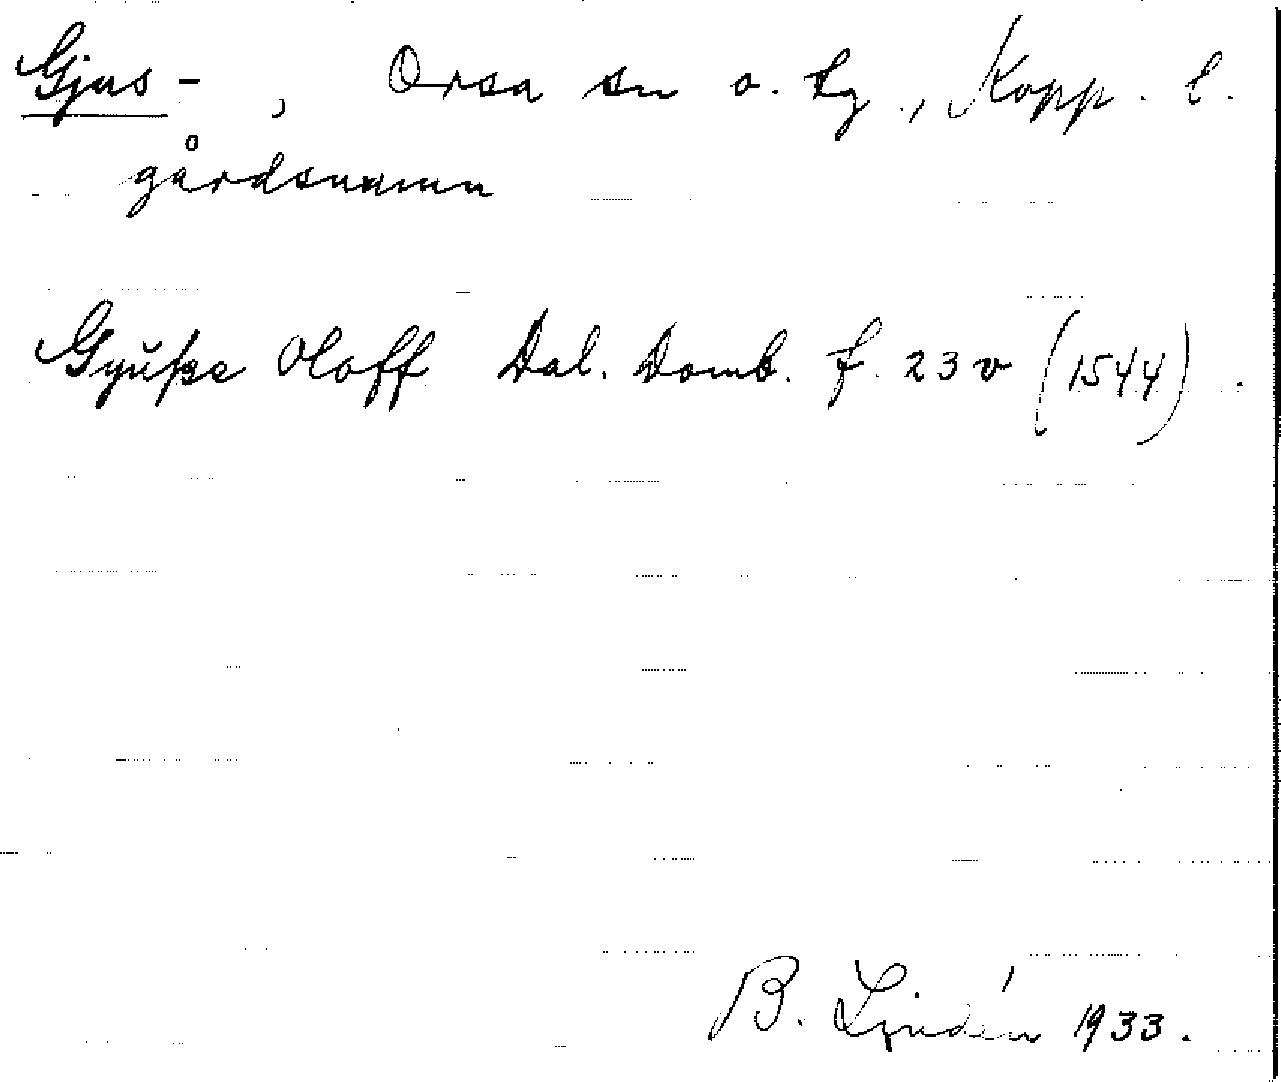 Gjus- , Orsa sn o. tg., Kopp. l.
gårdsnamn
Gyŭsse Oloff Dal. Domb. f. 23 v (1544).
B. Lindén 1933.